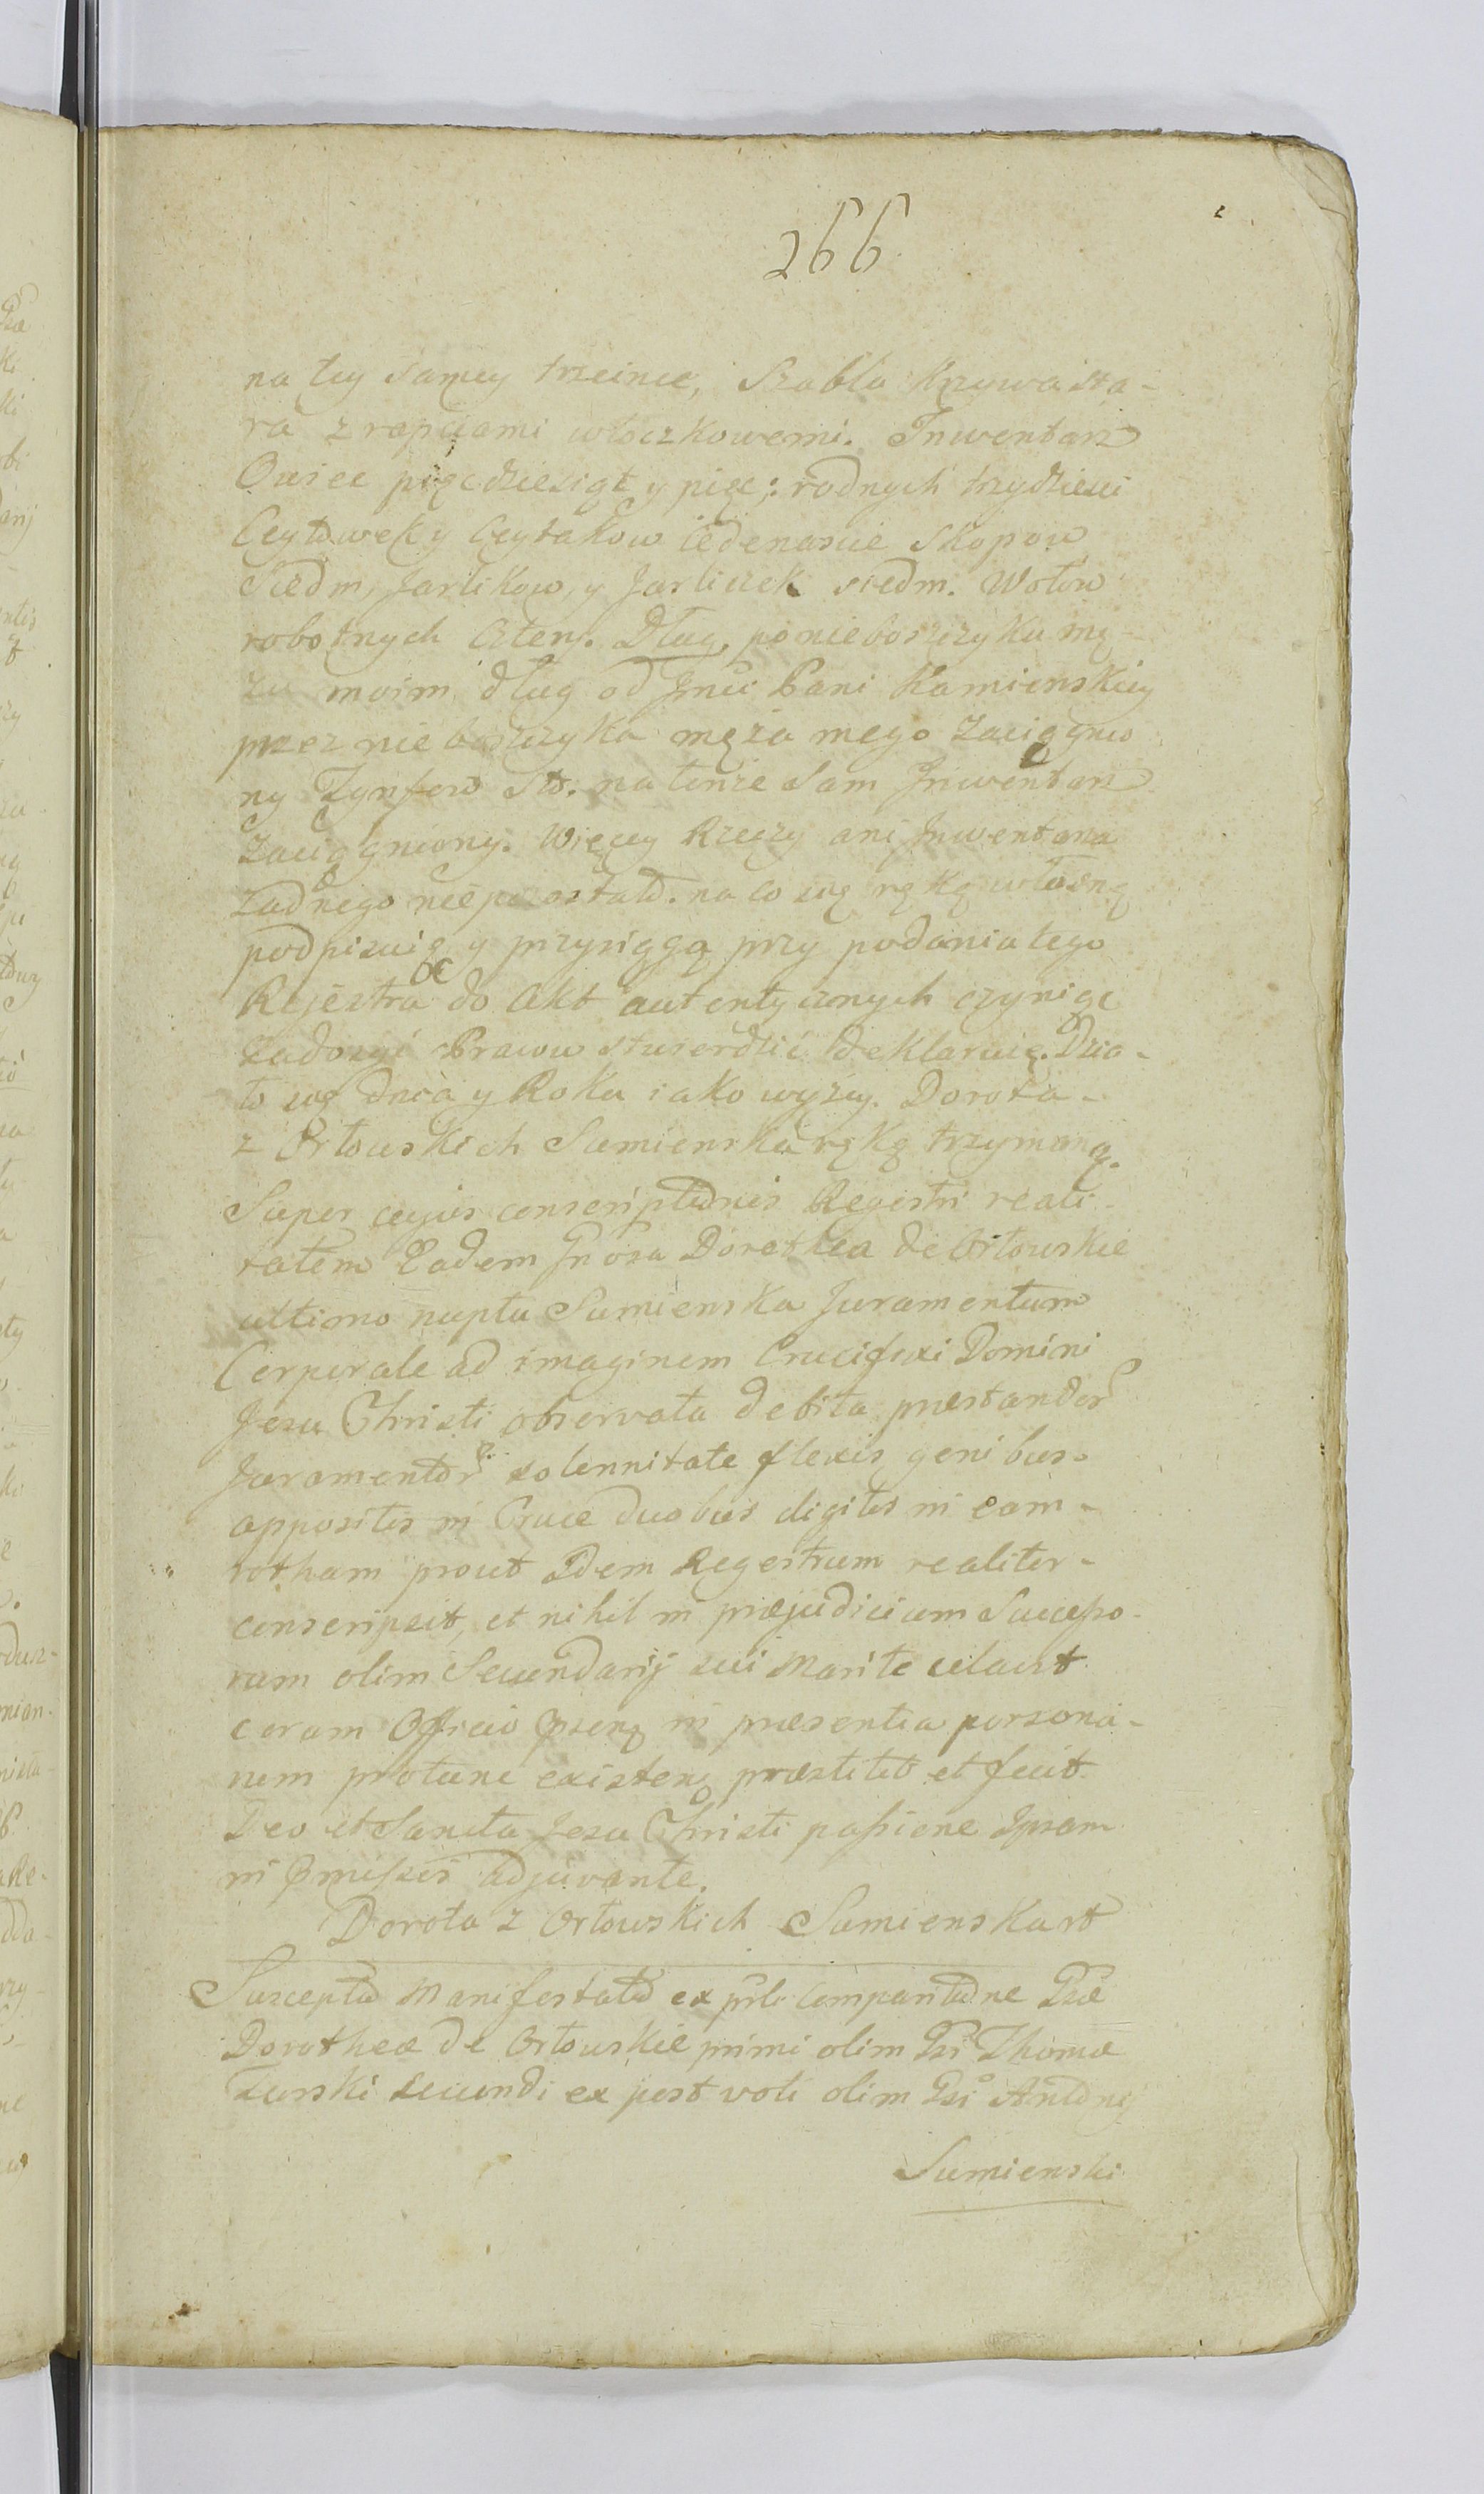 266
na tey samey trzcince, Szabla krzywa sta-
ra z rapciami włoczkowemi. Inwentarz
Owiec pięcdziesiąt y pięc; rodnych trzydziesci
Ceytowek y Ceytakow iedenascie Skopow
Siedm, Jarlikow, y Jarliczek siedm. Wołow
robotnych Cztery. Dług, po nieboszczyku mę-
zu moim dług od Jmci Pani Kamienskiey
przez nieboszczyka męża mego zaciągnio
ny Tynfow Sto. na tenże sam Inwentarz
zaciągniony. Więcey Rzeczy ani Inwentarza
żadnego nie pozostało. na co się ręką własną
podpisuię y przysięgą przy podania tego
Rejestra do Akt autentycznych czyniąc
zadosyć Prawu stwierdzić deklaruię. Dzia-
ło się dnia y Roku iako wyżey. Dorota
z Orłowskich Sumienska ręką trzymaną.
Super cujus conscriptionis Regestri reali-
tatem Eadem Gnosa Dorothea de Orłowskie
ultimo nupta Sumienska Juramentum
Corporale ad imaginem Crucifixi Domini
Jesu Christi observata debita præstandor
Juramentor solennitate flexis genibus
appositis in Cruce duobus digitis in eam-
rotham prout Idem Regestrum realiter
conscripsit, et nihil in præjudicium Successo-
rum olim Secundarij sui Mariti celavit
coram Officio in præsentia persona-
rum protunc existen præstitit et fecit
Deo et Sancta Jesu Christi passione Ipsam
in præmissis adjuvante.
Dorota z Orłowskich Sumienska
Suscepta Manifestatio ex comparitione Gsæ
Dorotheæ de Orłowskie primi olim Gsi Thomæ
Turski secundi ex post voti olim Gsi Antonij
Sumienski